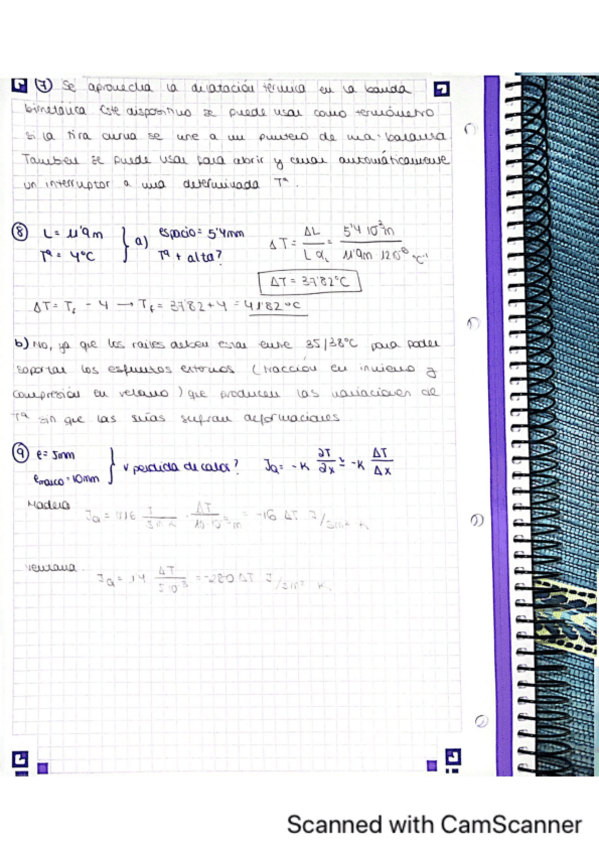 ⑦ Se aprovecha la dilatación térmica en la banda
bimetálica este dispositivo se puede usar como termómetro
si la tira curva se une a un puntero de una balanza
También se puede usar para abrir y cerrar automáticamente
un interruptor a una determinada Tª.
⑧ L = 11'9 m } a) espacio = 5'4mm ΔT = ΔL / L α_L = 5'4 10⁻³m / 11'9m 12·10⁻⁶ °C⁻¹
Tª = 4°C Tª + alta?
ΔT = 37'82°C
ΔT = T_f - 4 → T_f = 37'82 + 4 = 41'82 °C
b) No, ya que los raíles deben estar entre 35/38°C para poder
soportar los esfuerzos externos (tracción en invierno y
compresión en verano) que producen las variaciones de
Tª sin que las sufran deformaciones
⑨ e = 5mm } v perdida de calor? J_Q = -K ∂T/∂x ≃ -K ΔT/Δx
e_marco = 10mm
Madera
J_Q = ΔT = -16 ΔT J/
ventana
J_Q = 1'4 ΔT / 5·10⁻³ = -280 ΔT J/
Scanned with CamScanner